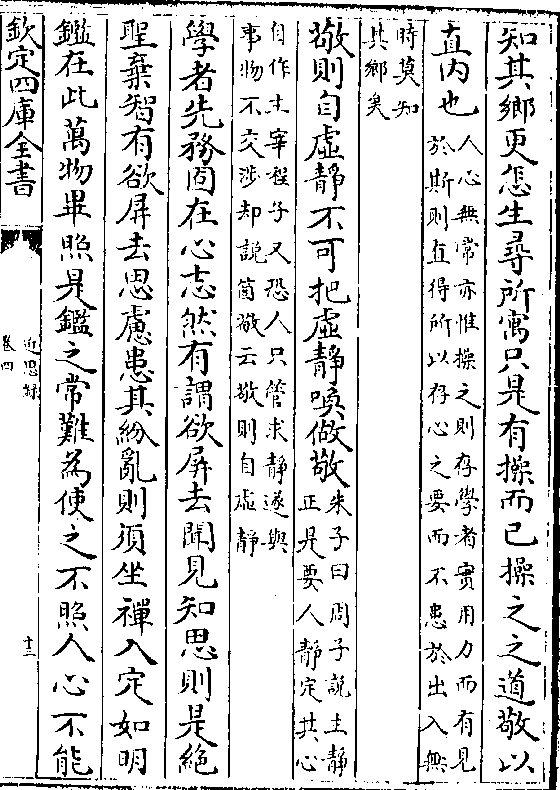 知其鄉更怎生尋所寓只是有操而已操之之道敬以
直内也
人心無常亦惟操之則存學者實用力而有見
於斯則直得所以存心之要而不患於出入無
時莫知
其鄉矣
敬則自虛静不可把虛静喚做敬
朱子曰周子說主静
正是要人静定其心
自作主宰程子又恐人只管求静遂與
事物不交涉却說箇敬云敬則自虛静
學者先務固在心志然有謂欲屏去聞見知思則是絶
聖棄智有欲屏去思慮患其紛亂則須坐禪入定如明
鑑在此萬物畢照是鑑之常難為使之不照人心不能
欽定四庫全書
近思録
卷四
十三